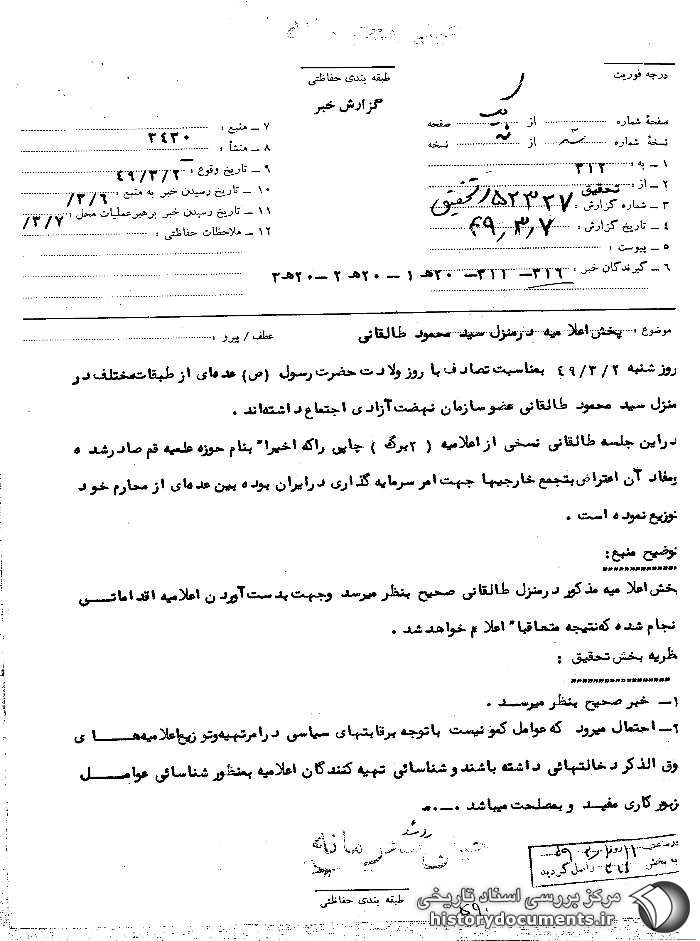 درجه فوریت
طبقه بندی حفاظتی
گزارش خبر
صفحهٔ شماره از صفحه
نسخهٔ شماره از نسخه
۱ ـ به : ۳۱۲
۲ ـ از : تحقیق
۳ ـ شماره گزارش : ۵۲۳۲۷ / تحقیق
۴ ـ تاریخ گزارش : ۴۹٫۳٫۷
۵ ـ پیوست :
۶ ـ گیرندگان خبر : ۳۱۶ ـ ۳۱۱ ـ ۲۰هـ ۱ ـ ۲۰هـ ۲ ـ ۲۰هـ ۳
۷ ـ منبع : ۳۴۳۰
۸ ـ منشأ :
۹ ـ تاریخ وقوع : ۴۹/۳/۲
۱۰ ـ تاریخ رسیدن خبر به منبع : /۳/۶
۱۱ ـ تاریخ رسیدن خبر برهبرعملیات محل : /۳/۷
۱۲ ـ ملاحظات حفاظتی :
موضوع : پخش اعلامیه درمنزل سید محمود طالقانی
عطف / پیرو :
روز شنبه ۴۹/۳/۲ بمناسبت تصادف با روز ولادت حضرت رسول (ص) عده‌ای از طبقات مختلف در
منزل سید محمود طالقانی عضو سازمان نهضت آزادی اجتماع داشته‌اند .
دراین جلسه طالقانی نسخی از اعلامیه ( ۲برگ ) چاپی راکه اخیرا" بنام حوزه علمیه قم صادرشد ه
ومفاد آن اعتراض بتجمع خارجیها جهت امر سرمایه گذاری درایران بوده بین عده‌ای از محارم خود
توزیع نموده است .
توضیح منبع :
پخش اعلامیه مذکور درمنزل طالقانی صحیح بنظر میرسد وجهت بدست آوردن اعلامیه اقداماتــی
نجام شده که نتیجه متعاقبا" اعلام خواهد شد .
ظریه بخش تحقیق :
۱ـ خبر صحیح بنظر میرســد .
۲ـ احتمال میرود که عوامل کمونیست باتوجه برقابتهای سیاسی درامر تهیه وتوزیع اعلامیه‌هـــا ی
وق الذکر دخالتهائی داشته باشند و شناسائی تهیه کنندگان اعلامیه بمنظور شناسائی عوامــل
زبور کاری مفیـد و بمصلحت میباشد .ـ.ـ.
به بخش ۳۱۲ واصل گردید
طبقه بندی حفاظتی
مرکز بررسی اسناد تاریخی
historydocuments.ir